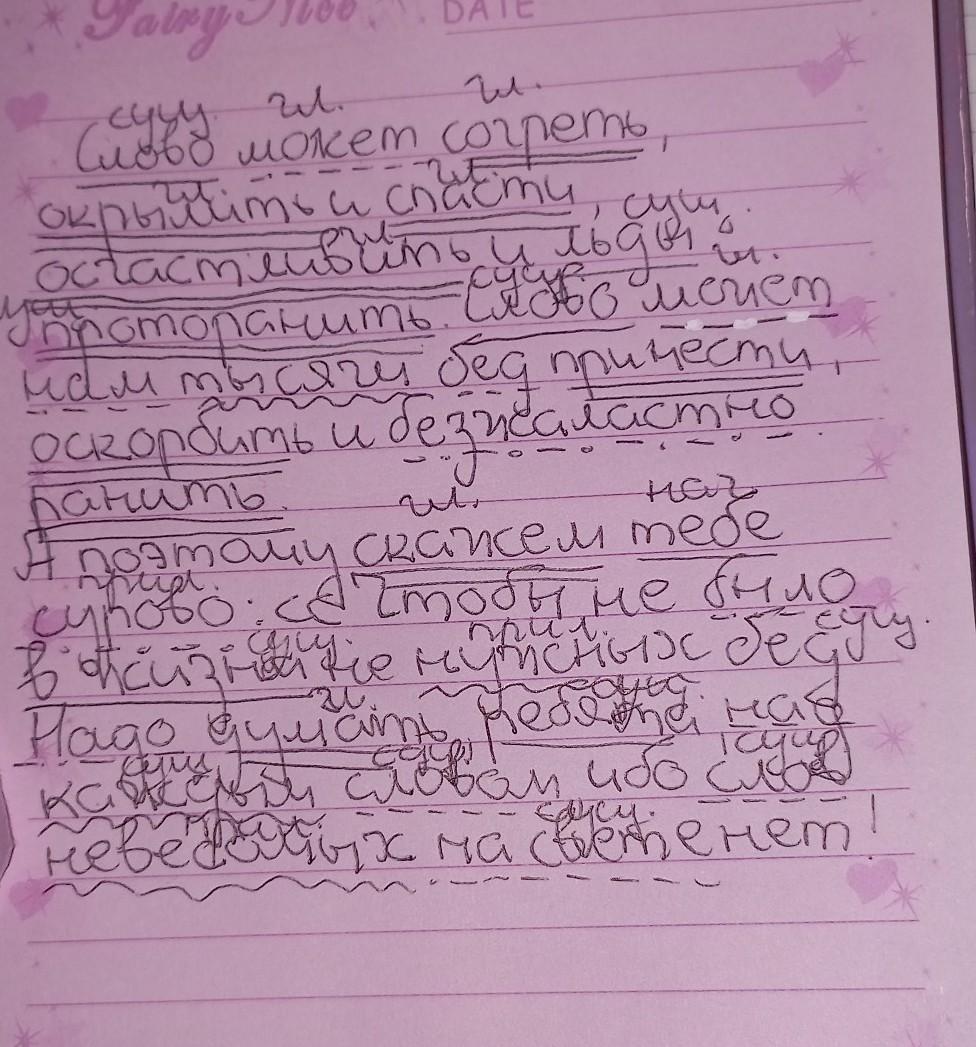 DATE
сущ. гл. гл.
Слово может согреть,
гл. гл.
окрылить и спасти, сущ.
гл.
осчастливить и льды
сущ. гл.
проторанить. Слово может
нам тысячи бед принести,
оскорбить и безжаластно
ранить.
гл. нач
А поэтому скажем тебе
сурово: Чтобы не было
сущ. прил. сущ.
в жизни не нужных бед
гл. сущ.
Надо думать ребята над
сущ.
каждым словом ибо слов
сущ.
неведомых на свете нет!